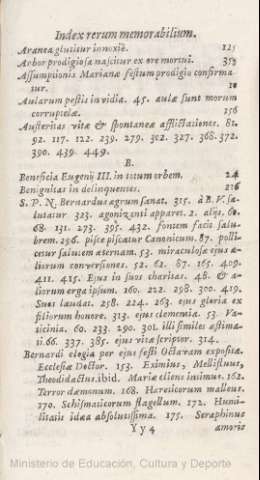 Index rerum memorabilium.
Aranea glutitur innoxiè. 125
Arbor prodigiosa nascitur ex ore mortui. 359
Assumptionis Marianæ festum prodigio confirma
tur. 10
Aularum pestis invidia. 45. aulæ sunt morum
corruptelæ. 256
Austeritas vitæ & spontaneæ afflictationes. 81.
92. 117. 122. 239. 279. 302. 327. 368. 372.
390. 439. 449.
B.
Beneficia Eugenij III. in totum orbem. 24
Benignitas in delinquentes. 216
S. P. N. Bernardus ægrum sanat. 315. à B. V. sa-
lutatur 323. agonizanti apparet. 2. alijs. 60.
68. 131. 273. 395. 432. fontem facit salu-
brem. 296. pisce piscatur Canonicum. 87. polli-
cetur salutem æternam. 53. miraculosa ejus a-
liorum conversiones. 52. 62. 87. 165. 409.
411. 415. Ejus in suos charitas. 48. & a-
liorum erga ipsum. 160. 222. 298. 300. 419.
Suos laudat. 258. 224. 263. ejus gloria ex
filiorum honore. 313. ejus clementia. 53. Va-
ticinia. 60. 233. 290. 301. illi similes æstima-
ti. 66. 337. 385. ejus vitæ scriptor. 314.
Bernardi elogia per ejus festi Octavam exposita.
Ecclesiæ Doctor. 153. Eximius, Mellifluus,
Theodidactus. ibid. Mariæ cliens intimus. 162.
Terror dæmonum. 168. Hæreticorum malleus.
170. Schismaticorum flagellum. 172. Humi-
litatis idæa absolutissima. 175. Seraphinus
Y y 4 amoris
Ministerio de Educación, Cultura y Deporte